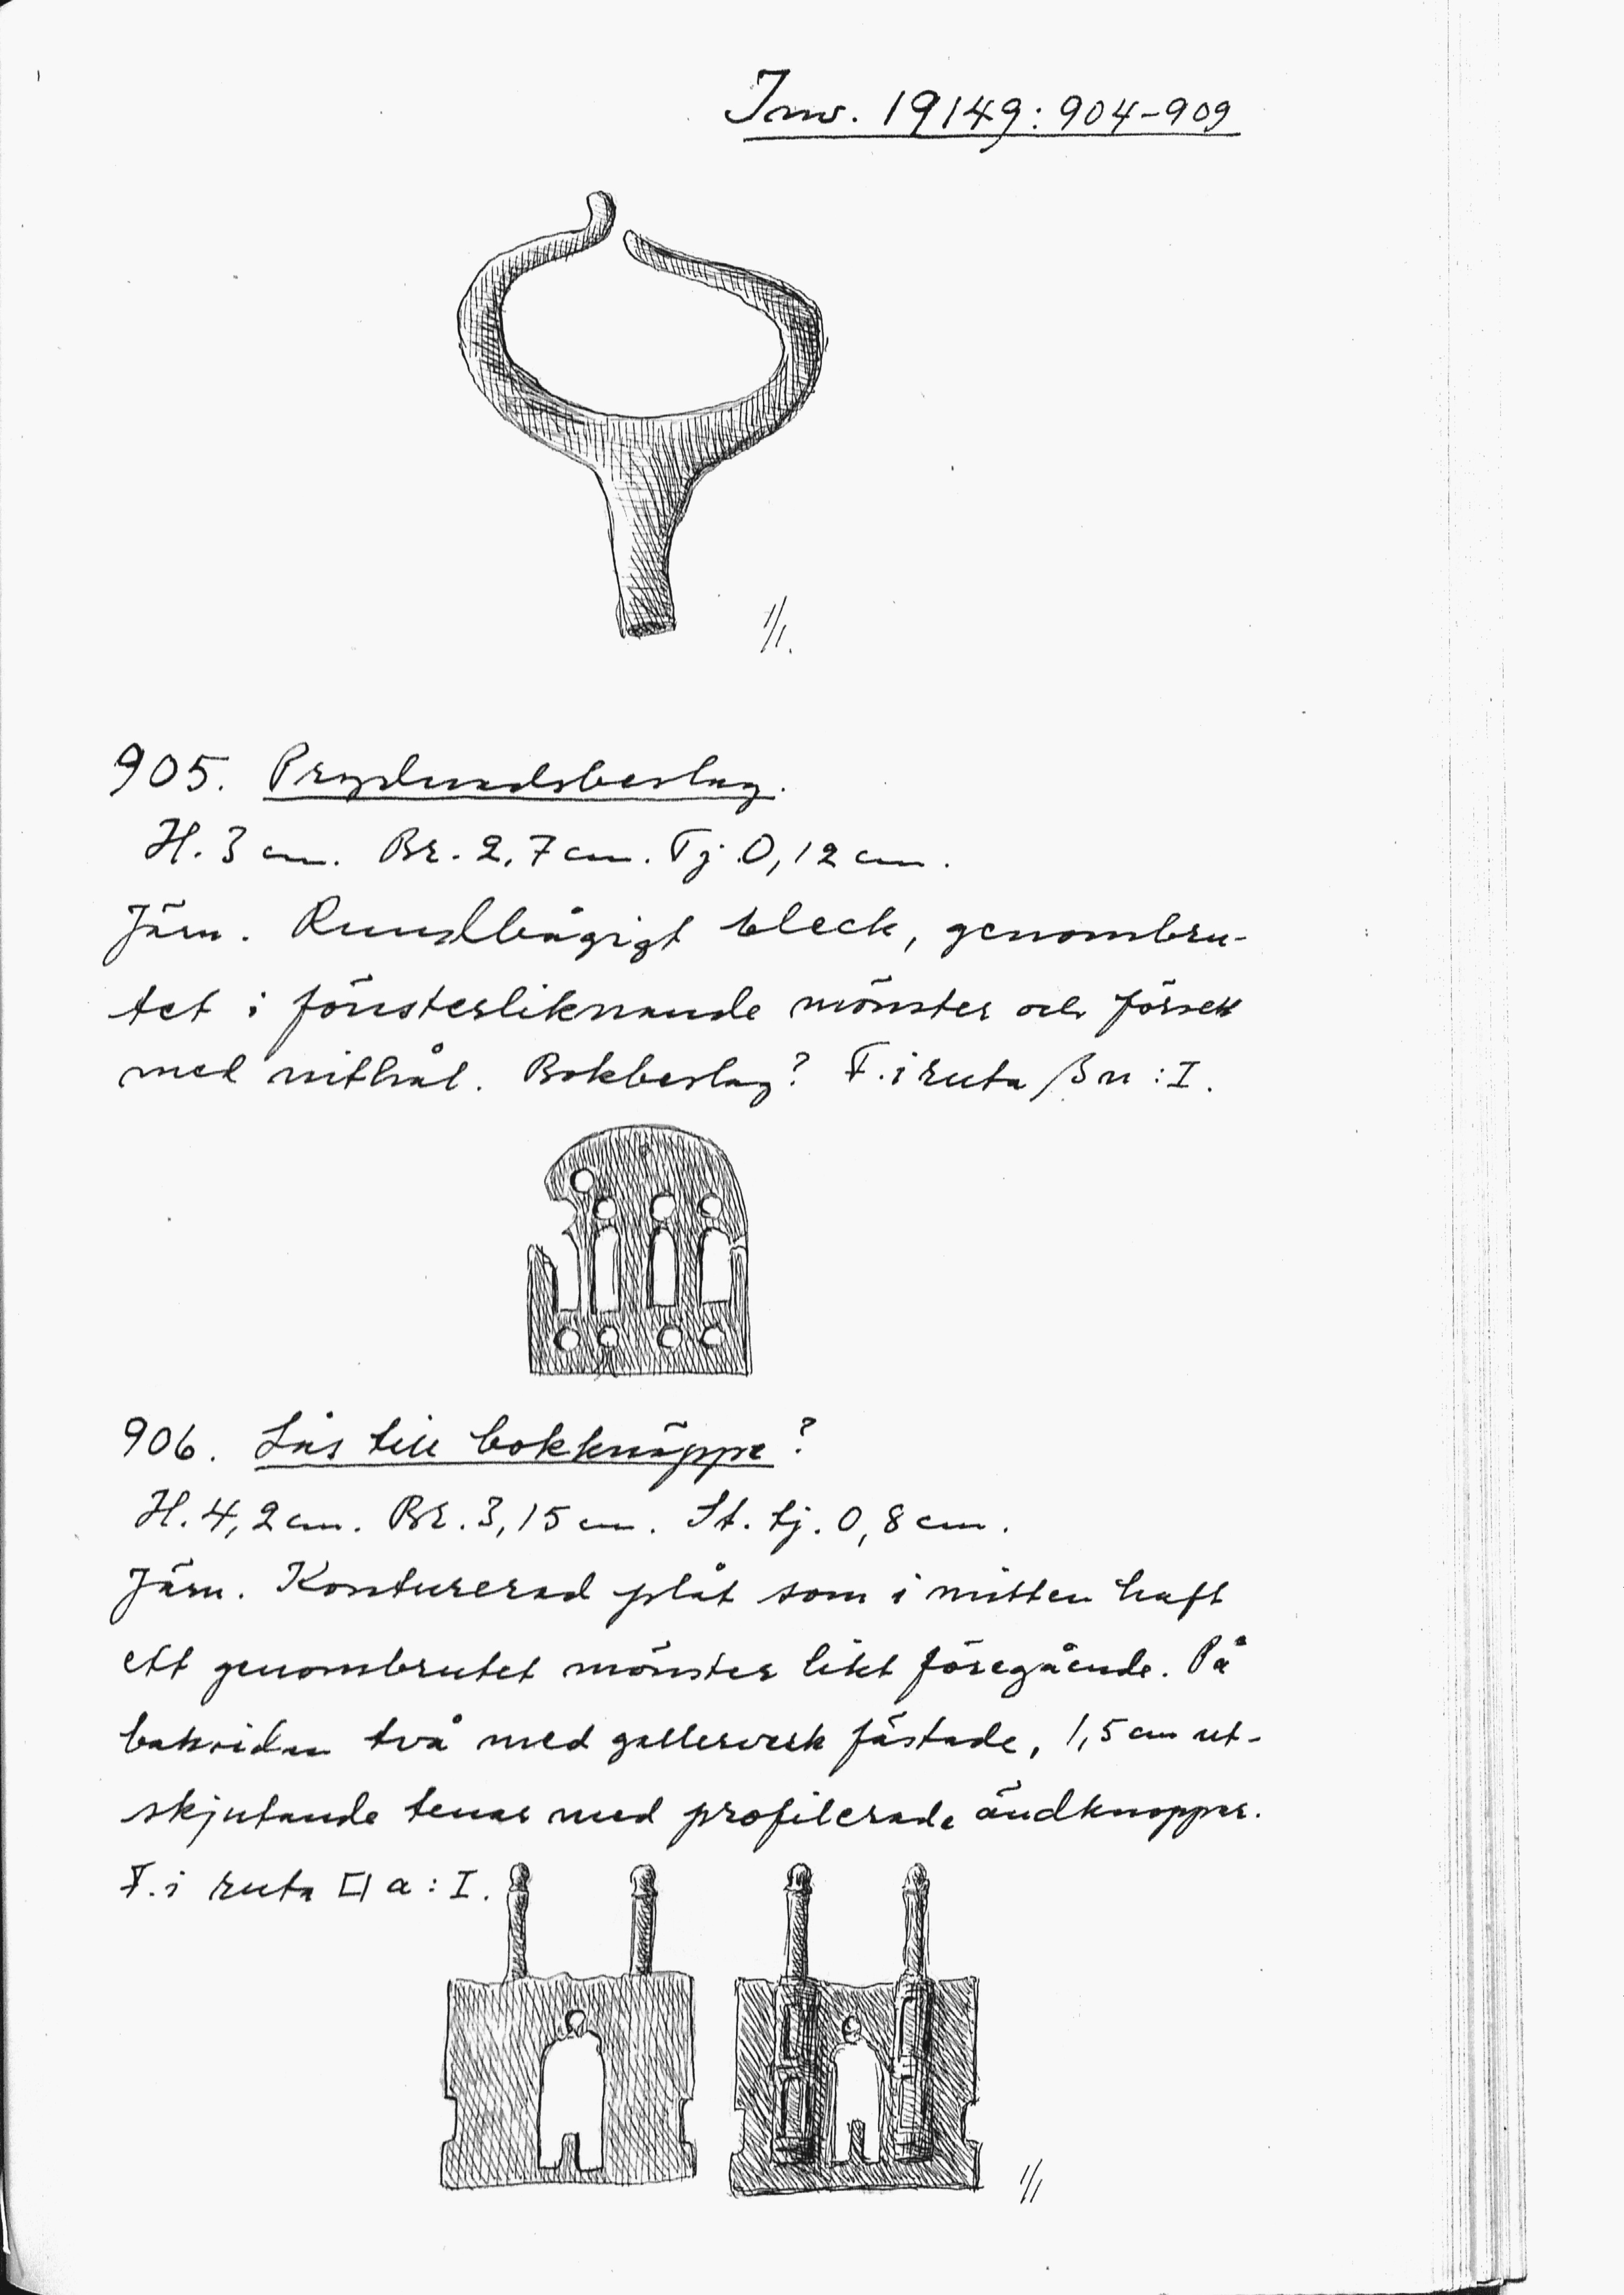 Inv. 19149: 904-909
1/1.
905. Prydnadsbeslag.
H. 3 cm. Br. 2,7 cm. Tj. 0,12 cm.
Järn. Rundbågigt bleck, genombru-
tet i fönsterliknande mönster och försett
med nithål. Bokbeslag? F. i ruta ßn : I.
906. Lås till bokknäppe?
H. 4,2 cm. Br. 3,15 cm. St. tj. 0,8 cm.
Järn. Konturerad plåt som i mitten haft
ett genombrutet mönster likt föregående. På
baksidan två med gallerverk fästade, 1,5 cm ut-
skjutande tenar med profilerade ändknoppar.
F. i ruta a : I.
1/1